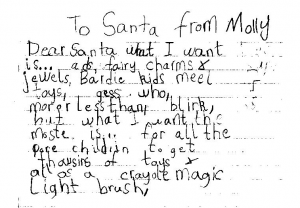 To Santa from Molly
Dear Santa what I want
is... a ds, fairy charms &
jewels, Bardie kids meel
toys, gess who,
morer less than, blink,
but what I want the
moste is.. for all the
pore children to get
thousins of toys &
all so a crayole magic
light brush,